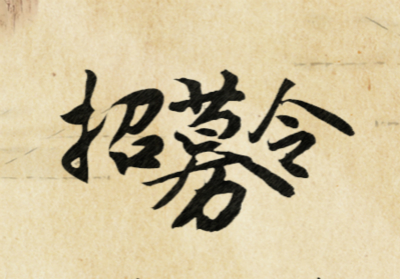 招募令